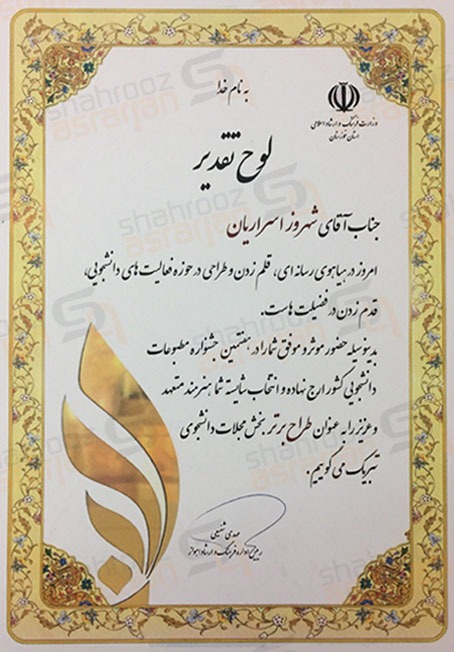 به نام خدا
وزارت فرهنگ و ارشاد اسلامی
استان خوزستان
لوح تقدیر
جناب آقای شهروز اسراریان
امروز در هیاهوی رسانه ای، قلم زدن و طراحی در حوزه فعالیت های دانشجویی،
قدم زدن در فضیلت هاست.
بدینوسیله حضور موثر و موفق شما را در هفتمین جشنواره مطبوعات
دانشجویی کشور ارج نهاده و انتخاب شایسته شما هنرمند متعهد
و عزیز را به عنوان طراح برتر بخش مجلات دانشجوی
تبریک می گوییم.
مهدی شفیعی
رییس اداره فرهنگ و ارشاد اهواز
shahrooz
asrarian